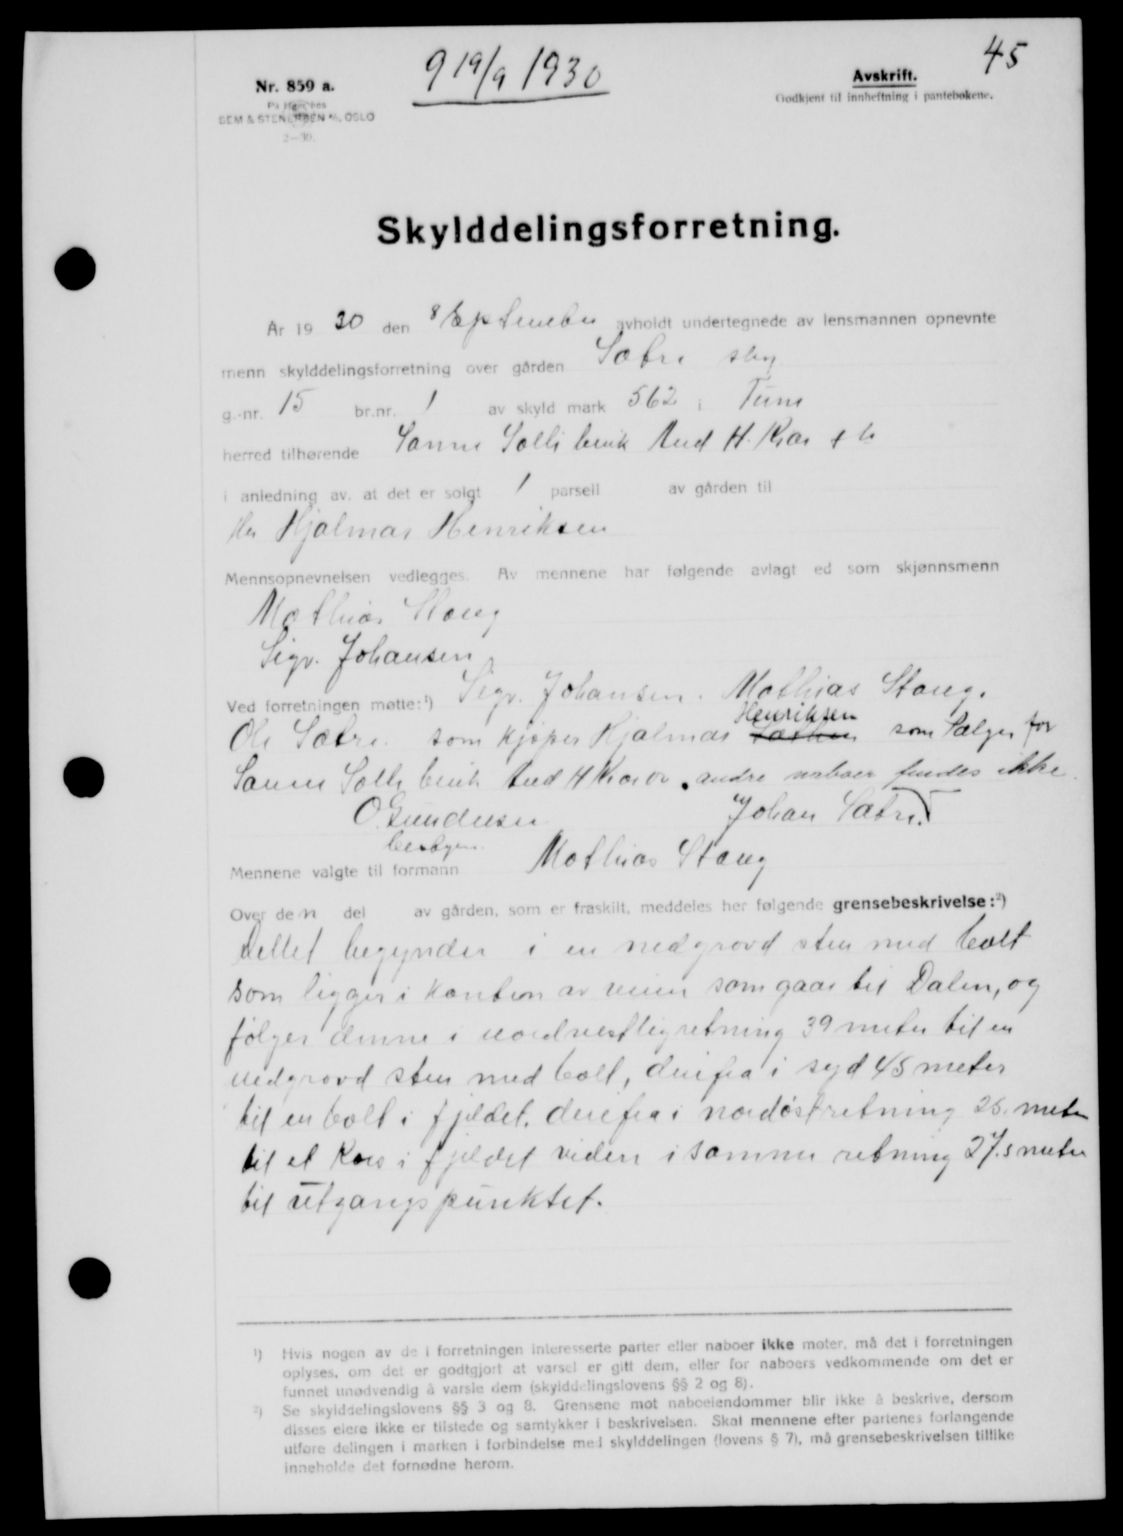 45
9 19/9 1930
Nr. 859 a.
SEM & STENERSEN A/S, OSLO
2-30.
Avskrift.
Godkjent til innheftning i pantebøkene.
Skylddelingsforretning.
År 1930 den 8 September avholdt undertegnede av lensmannen opnevnte
menn skylddelingsforretning over gården Sætre
g.-nr. 15 br.nr. 1 av skyld mark 562 i Tune
herred tilhørende Sanne Solli bruk And H. Kiær & Co
i anledning av, at det er solgt 1 parsell av gården til
Hr Hjalmar Henriksen
Mennsopnevnelsen vedlegges. Av mennene har følgende avlagt ed som skjønnsmenn
Mathias Stang
Sigv. Johansen
Ved forretningen møtte:¹) Sigv. Johansen. Mathias Stang.
Ole Sætre. som kjøper Hjalmar Henriksen som Sælger for
Sanne Solli bruk And H Kiær, andre naboer findes ikke.
O. Gundersen Johan Sætre.
Mennene valgte til formann Mathias Stang
Over den del av gården, som er fraskilt, meddeles her følgende grensebeskrivelse:²)
Dellet begynder i en nedgravd sten med bolt
som ligger i kanten av veien som gaar til Dalen, og
følger denne i nordvestlig retning 39 meter til en
nedgravd sten med bolt, derifra i syd 45 meter
til en bolt i fjeldet. derifra i nordøst retning 25. meter
til et Kors i fjeldet videre i samme retning 27.5 meter
til utgangspunktet.
¹) Hvis nogen av de i forretningen interesserte parter eller naboer ikke møter, må det i forretningen
oplyses, om det er godtgjort at varsel er gitt dem, eller for naboers vedkommende om det er
funnet unødvendig å varsle dem (skylddelingslovens §§ 2 og 8).
²) Se skylddelingslovens §§ 3 og 8. Grensene mot naboeiendommer blir ikke å beskrive, dersom
disses eiere ikke er tilstede og samtykker i beskrivelsen. Skal mennene efter partenes forlangende
utføre delingen i marken i forbindelse med skylddelingen (lovens § 7), må grensebeskrivelsen tillike
inneholde det fornødne herom.